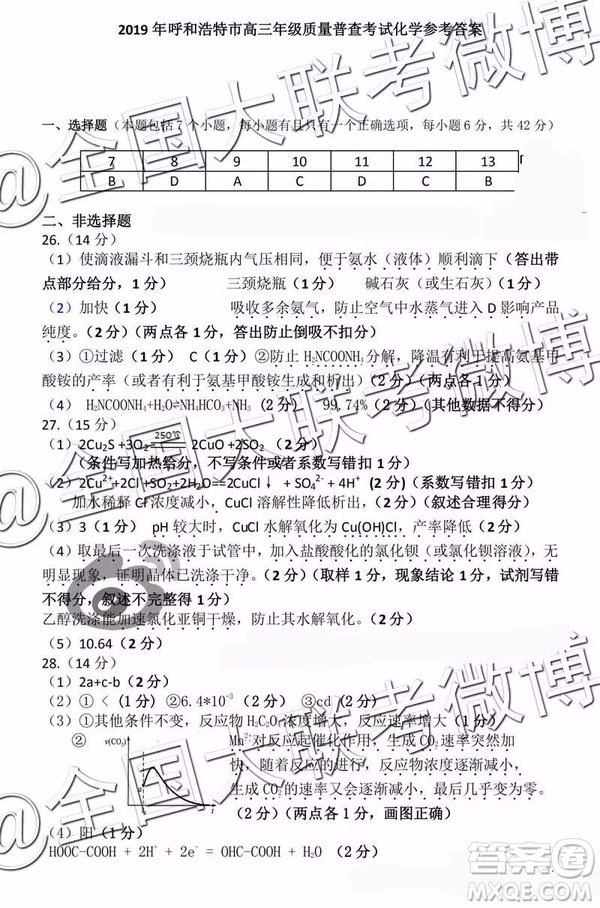 2019 年呼和浩特市高三年级质量普查考试化学参考答案
一、选择题（本题包括 7 个小题，每小题有且只有一个正确选项，每小题 6 分，共 42 分）
7 8 9 10 11 12 13
B D A C D C B
二、非选择题
26.（14 分）
（1）使滴液漏斗和三颈烧瓶内气压相同，便于氨水（液体）顺利滴下（答出带
点部分给分，1 分） 三颈烧瓶（1 分） 碱石灰（或生石灰）（1 分）
（2）加快（1 分） 吸收多余氨气，防止空气中水蒸气进入 D 影响产品
纯度。（2 分）（两点各 1 分，答出防止倒吸不扣分）
（3）①过滤（1 分） C（1 分）②防止 H₂NCOONH₄分解，降温有利于提高氨基甲
酸铵的产率（或者有利于氨基甲酸铵生成和析出）（2 分）（两点各 1 分）
（4） H₂NCOONH₄+H₂O⇌NH₄HCO₃+NH₃ （2 分） 99.74%（2 分）（其他数据不得分）
27.（15 分）
（1）2Cu₂S +3O₂ 250℃ 2CuO +2SO₂ （2 分）
（条件写加热给分，不写条件或者系数写错扣 1 分）
（2）2Cu²⁺+2Cl⁻+SO₂+2H₂O=2CuCl↓ + SO₄²⁻+ 4H⁺ (2 分)（系数写错扣 1 分）
加水稀释 Cl⁻浓度减小，CuCl 溶解性降低析出，（2 分）（叙述合理得分）
（3）3（1 分） pH 较大时，CuCl 水解氧化为 Cu(OH)Cl，产率降低（2 分）
（4）取最后一次洗涤液于试管中，加入盐酸酸化的氯化钡（或氯化钡溶液），无
明显现象，证明晶体已洗涤干净。（2 分）（取样 1 分，现象结论 1 分，试剂写错
不得分，叙述不完整得 1 分）
乙醇洗涤能加速氯化亚铜干燥，防止其水解氧化。（2 分）
（5）10.64（2 分）
28.（14 分）
（1）2a+c-b（2 分）
（2）① <（1 分） ②6.4*10⁻³（2 分） ③cd（2 分）
（3）①其他条件不变，反应物 H₂C₂O₄浓度增大，反应速率增大（1 分）
② v(CO₂) Mn²⁺对反应起催化作用，生成 CO₂速率突然加
快。随着反应的进行，反应物浓度逐渐减小，
生成 CO₂的速率又会逐渐减小，最后几乎变为零。
（2 分）（两点各 1 分，画图正确）
t
（4）阳（1 分）
HOOC-COOH + 2H⁺ + 2e⁻ = OHC-COOH + H₂O （2 分）
@全国大联考微博
@全国大联考微博
@全国大联考微博
答案圈
MXQE.COM